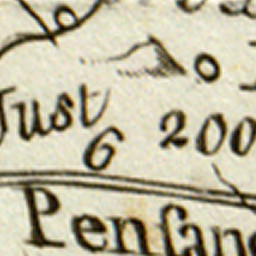 Just
6 200
Pensan